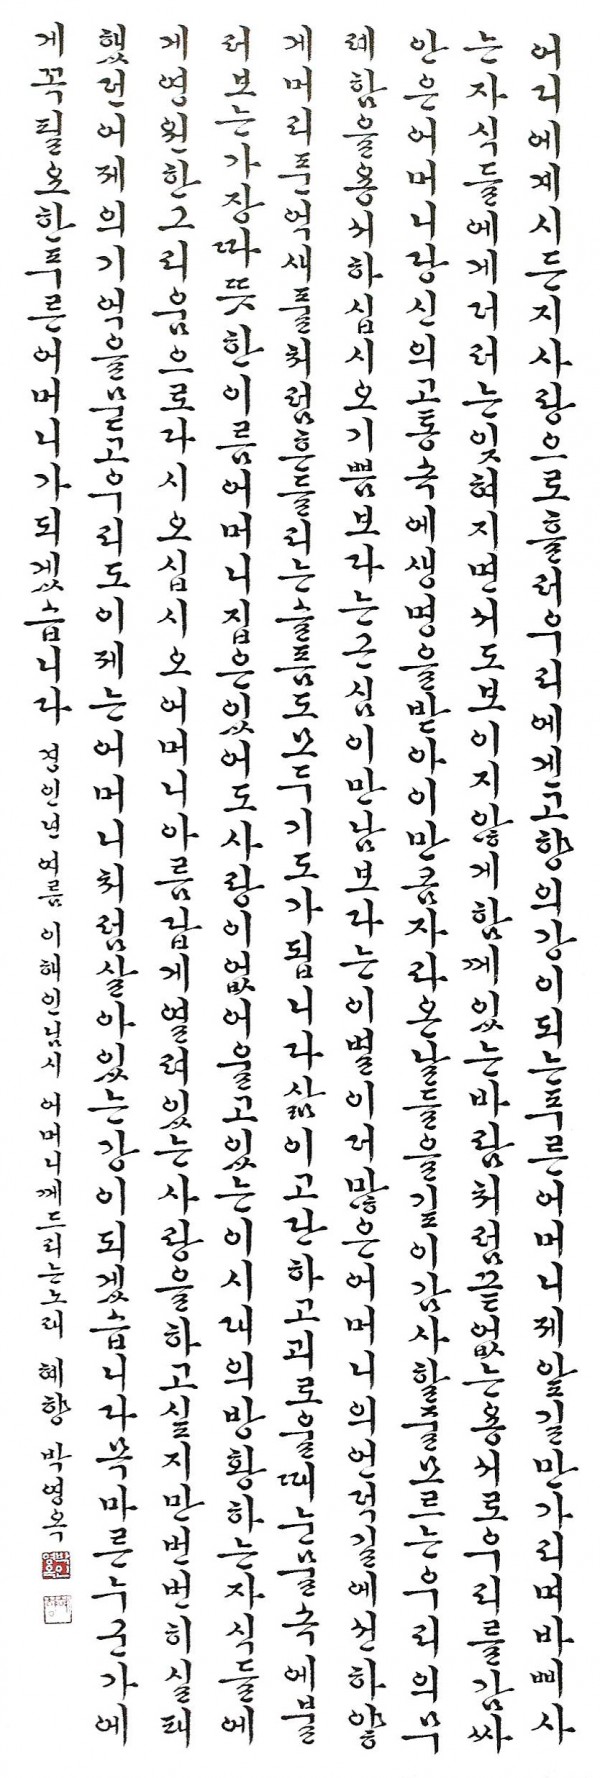 어디에계시든지사랑으로흘러우리에겐고향의강이되는푸른어머니제앞길만가리며바삐사
는자식들에게더러는잊혀지면서도보이지않게함께있는바람처럼끝없는용서로우리를감싸
안은어머니당신의고통속에생명을받아이만큼자라온날들을깊이감사할줄모르는우리의무
례함을용서하십시오기쁨보다는근심이만남보다는이별이더많은어머니의언덕길에선하얗
게머리푼억새풀처럼흔들리는슬픔도모두기도가됩니다삶이고단하고괴로울때눈물속에불
러보는가장따뜻한이름어머니집은있어도사랑이없어울고있는이시대의방황하는자식들에
게영원한그리움으로다시오십시오어머니아름답게열려있는사랑을하고싶지만번번히실패
했던어제의기억을묻고우리도이제는어머니처럼살아있는강이되겠습니다목마른누군가에
게꼭필요한푸른어머니가되겠습니다 경인년여름 이해인님시 어머니께드리는노래 혜향 박영옥